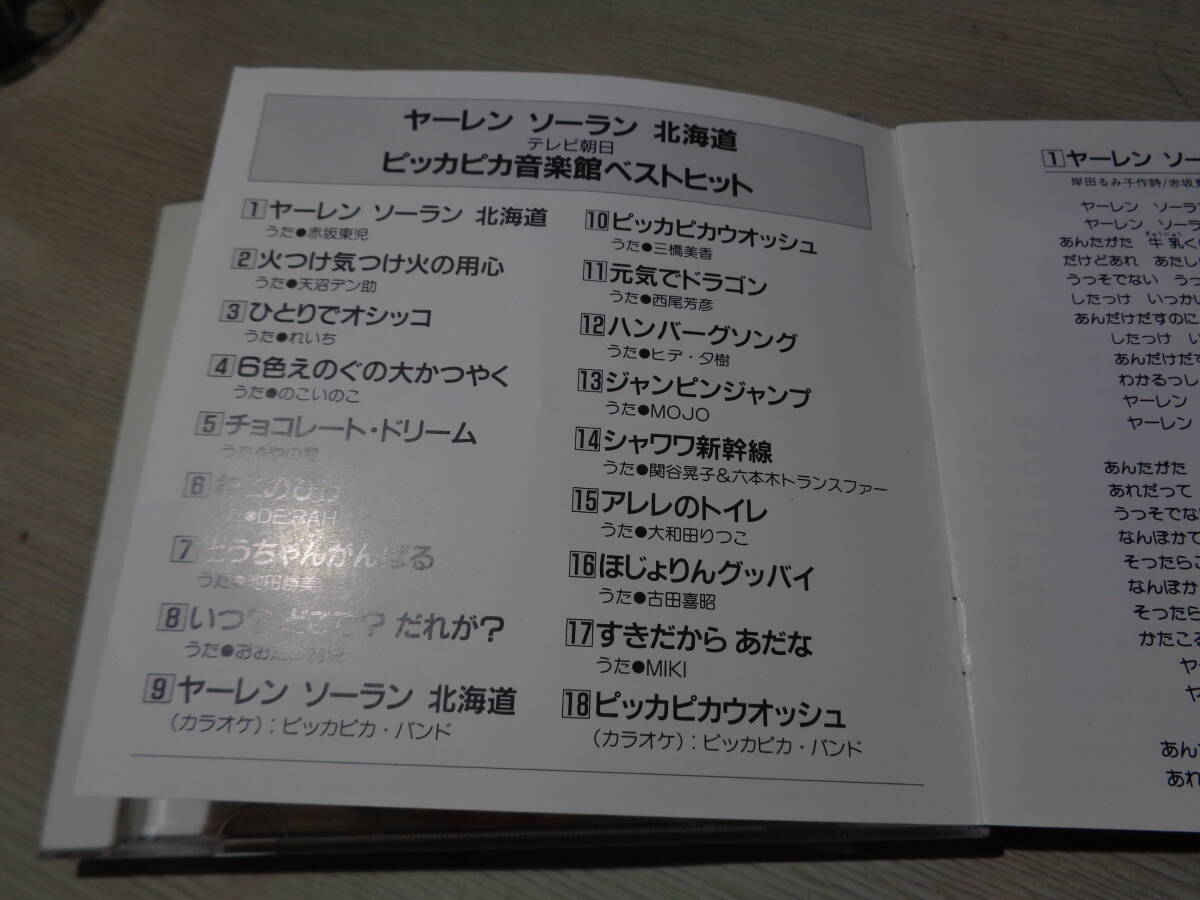 ヤーレン ソーラン 北海道
テレビ朝日
ピッカピカ音楽館ベストヒット
1 ヤーレン ソーラン 北海道
うた●赤坂東児
2 火つけ気つけ火の用心
うた●天沼デン助
3 ひとりでオシッコ
うた●れいち
4 6色えのぐの大かつやく
うた●のこいのこ
5 チョコレート・ドリーム
6
DE:RAH
7 とうちゃんがんばる
うた●
8 いつ? どこで? だれが?
うた●
9 ヤーレン ソーラン 北海道
(カラオケ):ピッカピカ・バンド
10 ピッカピカウオッシュ
うた●三橋美香
11 元気でドラゴン
うた●西尾芳彦
12 ハンバーグソング
うた●ヒデ・夕樹
13 ジャンピンジャンプ
うた●MOJO
14 シャワワ新幹線
うた●関谷晃子&六本木トランスファー
15 アレレのトイレ
うた●大和田りつこ
16 ほじょりんグッバイ
うた●古田喜昭
17 すきだから あだな
うた●MIKI
18 ピッカピカウオッシュ
(カラオケ):ピッカピカ・バンド
1 ヤーレン ソー
岸田るみ子作詩/赤坂
ヤーレン ソーラ
ヤーレン ソー
ぎゅうにゅう
あんたがた 牛乳く
だけどあれ あたし
うっそでない うっ
したっけ いっか
あんだけだすのに
したっけ い
あんだけだす
わかるっし
ヤーレン
ヤーレン
あんたがた
あれだって
うっそでな
なんぼかて
そったらこ
なんぼか
そったら
かたこる
ヤ
ヤ
あん
あれ